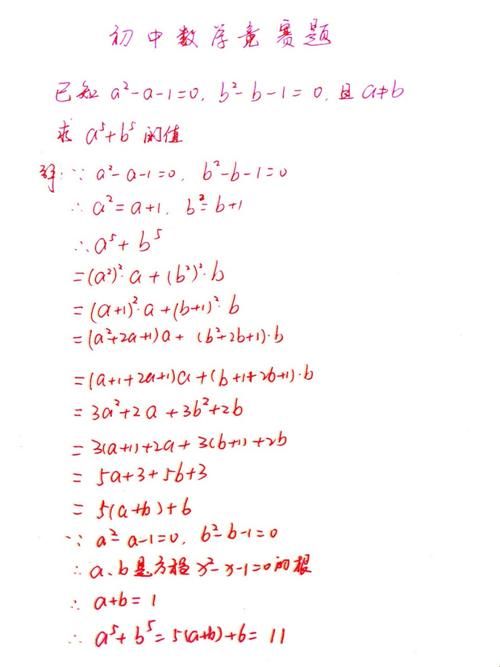 初中数学竞赛题
已知 a²-a-1=0, b²-b-1=0, 且a≠b
求 a⁵+b⁵ 的值
解: ∵ a²-a-1=0, b²-b-1=0
∴ a²=a+1, b²=b+1
∴ a⁵+b⁵
=(a²)²·a+(b²)²·b
=(a+1)²·a+(b+1)²·b
=(a²+2a+1)a+(b²+2b+1)·b
=(a+1+2a+1)a+(b+1+2b+1)·b
=3a²+2a+3b²+2b
=3(a+1)+2a+3(b+1)+2b
=5a+3+5b+3
=5(a+b)+6
∵ a²-a-1=0, b²-b-1=0
∴ a、b是方程x²-x-1=0的根
∴ a+b=1
∴ a⁵+b⁵=5(a+b)+6=11